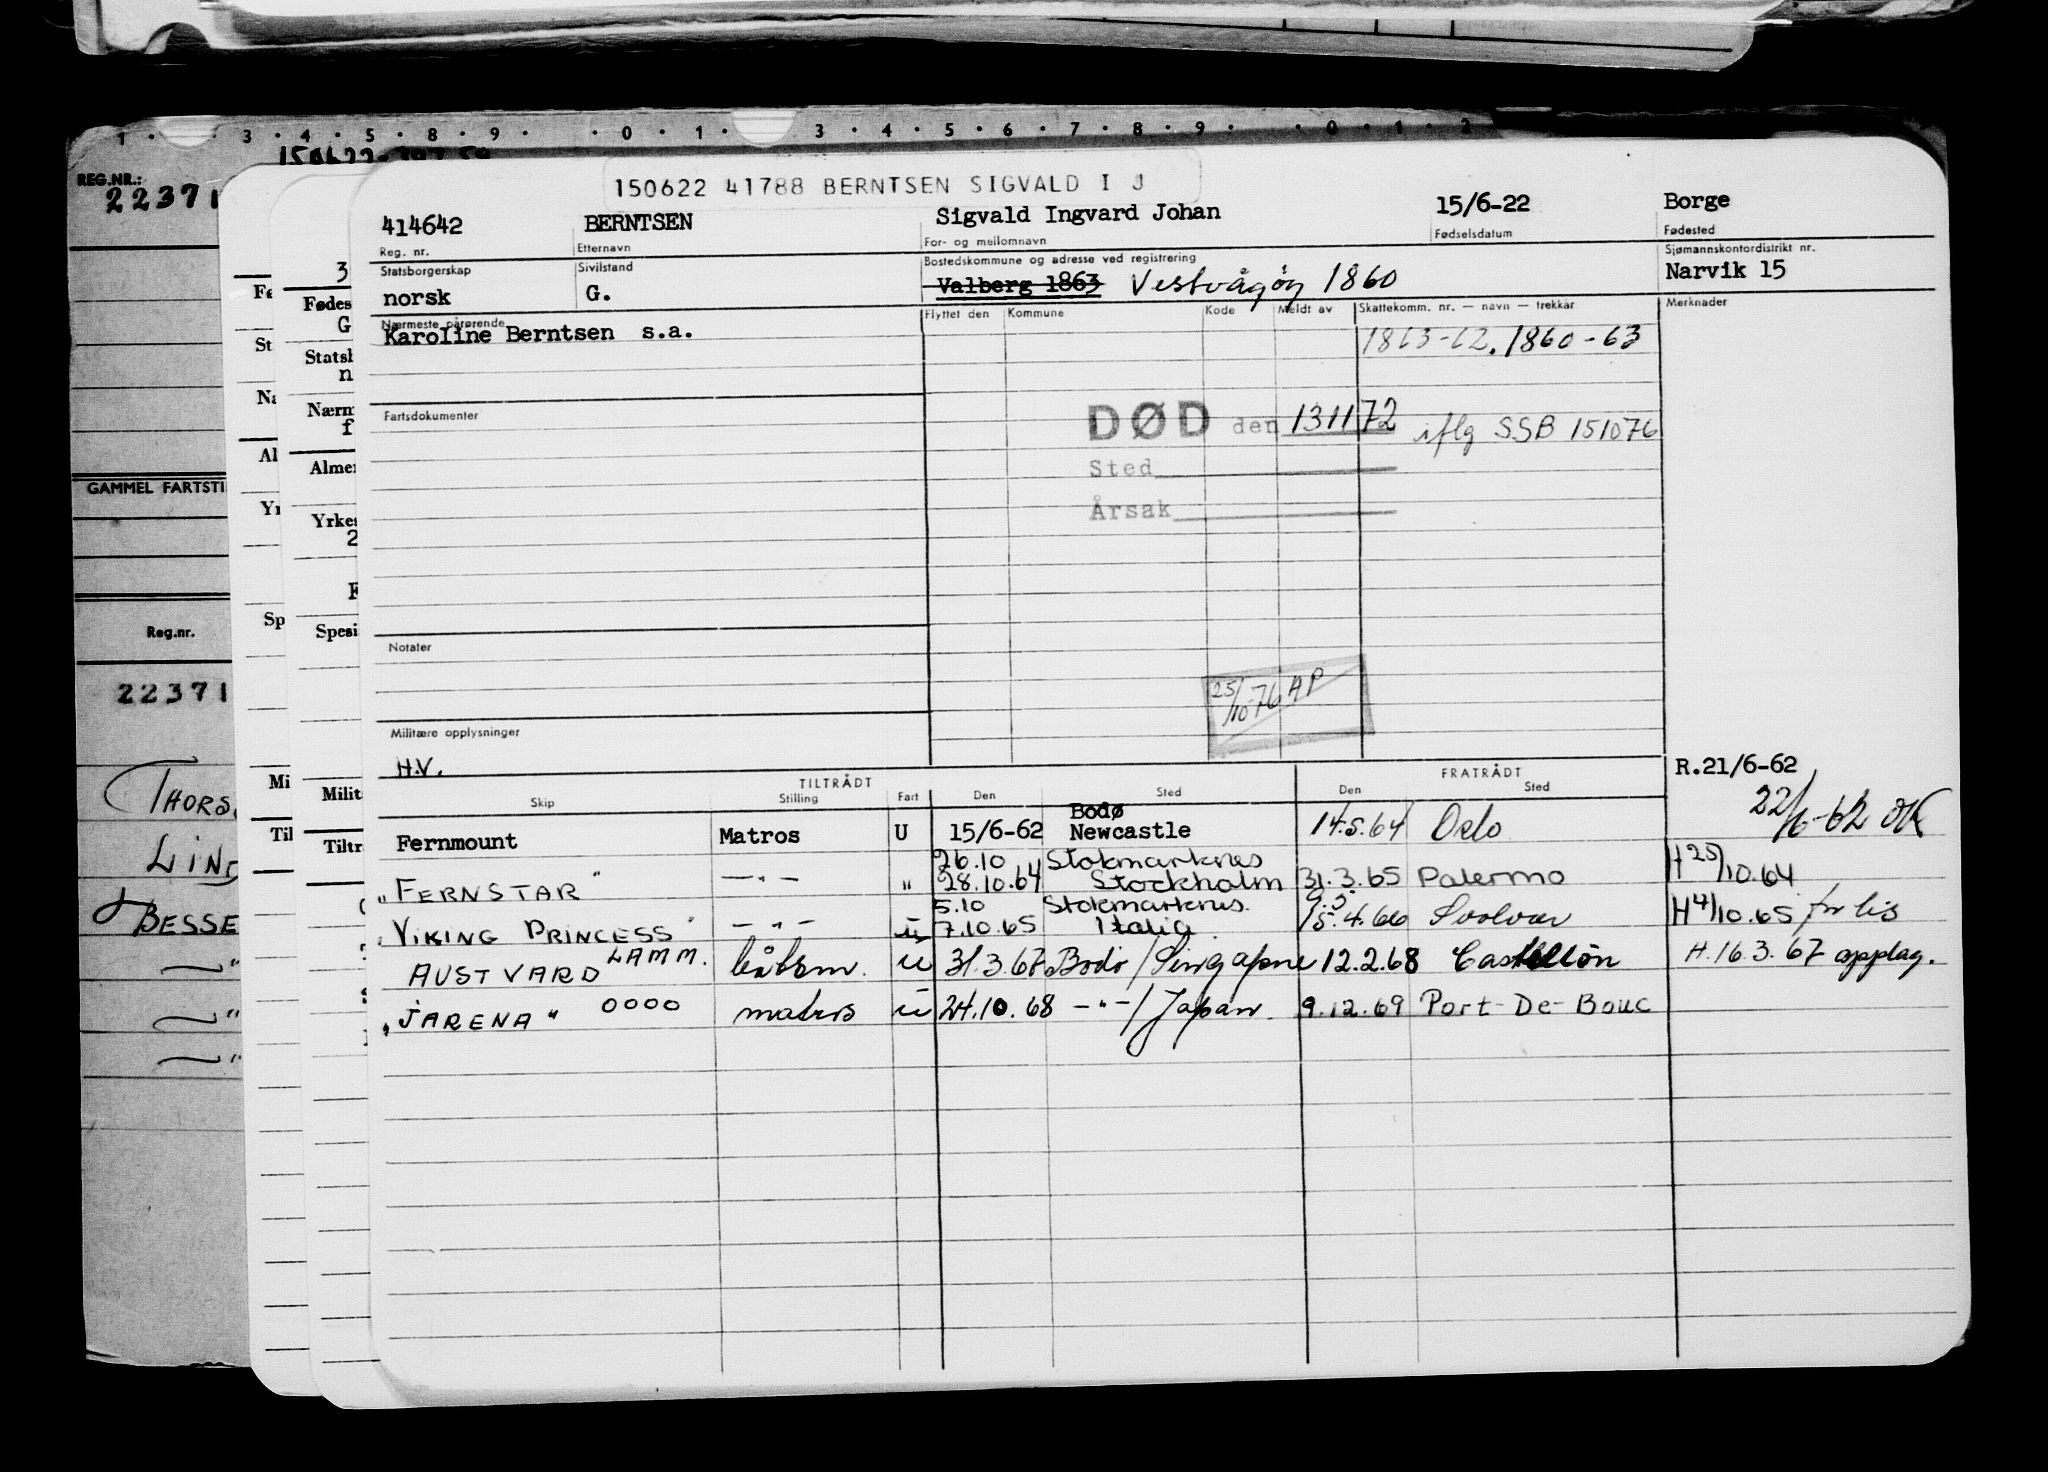 1 · 3 · 4 · 5 · 8 · 9 · · 0 · 1 · 3 · 4 · 5 · 6 · 7 · 8 · 9 · · 0 · 1 · 2
REG.NR.:
22371
GAMMEL FARTSTI
Reg.nr.
22371
THORS
LIND
BESSE
3
Fødes
G
St
Statsl
n
Na
Nærm
f
Al
Almer
Yr
Yrkes
2
Sp
Spesi
Mi
Milit
Til
Tiltr
150622 41788 BERNTSEN SIGVALD I J
414642 BERNTSEN Sigvald Ingvard Johan 15/6-22 Borge
Reg. nr. Etternavn For- og mellomnavn Fødselsdatum Fødested
Statsborgerskap Sivilstand Bostedskommune og adresse ved registrering Sjømannskontordistrikt nr.
norsk G. Valberg 1863 Vestvågøy 1860 Narvik 15
Nærmeste pårørende Flyttet den Kommune Kode Meldt av Skattekomm. nr. — navn — trekkår Merknader
Karoline Berntsen s.a. 1863-62. 1860-63
Fartsdokumenter
DØD den 131172 iflg SSB 151076
Sted
Årsak
Notater
25/10-76 AP
Militære opplysninger
H.V.
TILTRÅDT FRATRÅDT R.21/6-62
Skip Stilling Fart Den Sted Den Sted
22/6-62 OK
Bodø
Fernmount Matros U 15/6-62 Newcastle 14.5.64 Oslo
26.10 Stokmarknes
"FERNSTAR" —"— " 28.10.64 Stockholm 31.3.65 Palermo H 25/10.64
5.10 Stokmarknes 9.5
"VIKING PRINCESS" —"— u 7.10.65 Italia 15.4.66 Svolvær H 4/10.65 forlis
AUSTVARD LAMM. båtsm. u 31.3.67 Bodø/Singapore 12.2.68 Castellon H.16.3.67 opplag.
"JARENA" OOOO matros u 24.10.68 —"—/Japan. 9.12.69 Port-De-Bouc